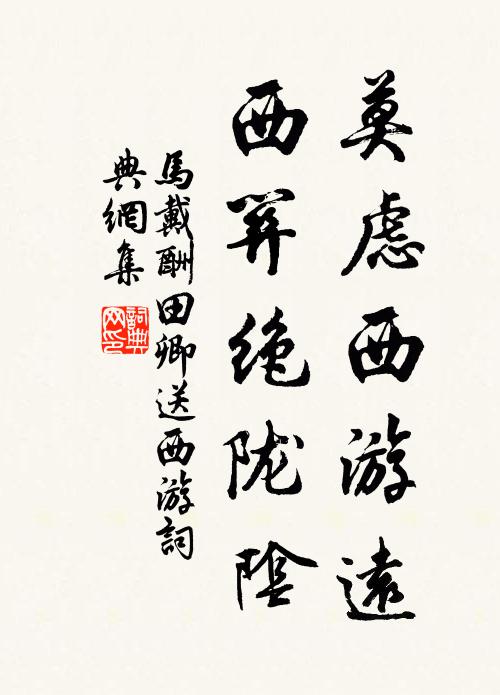 莫慮西游遠
西關绝陇陰
馬戴酬田卿送西游詞
典網集
詞典
网印